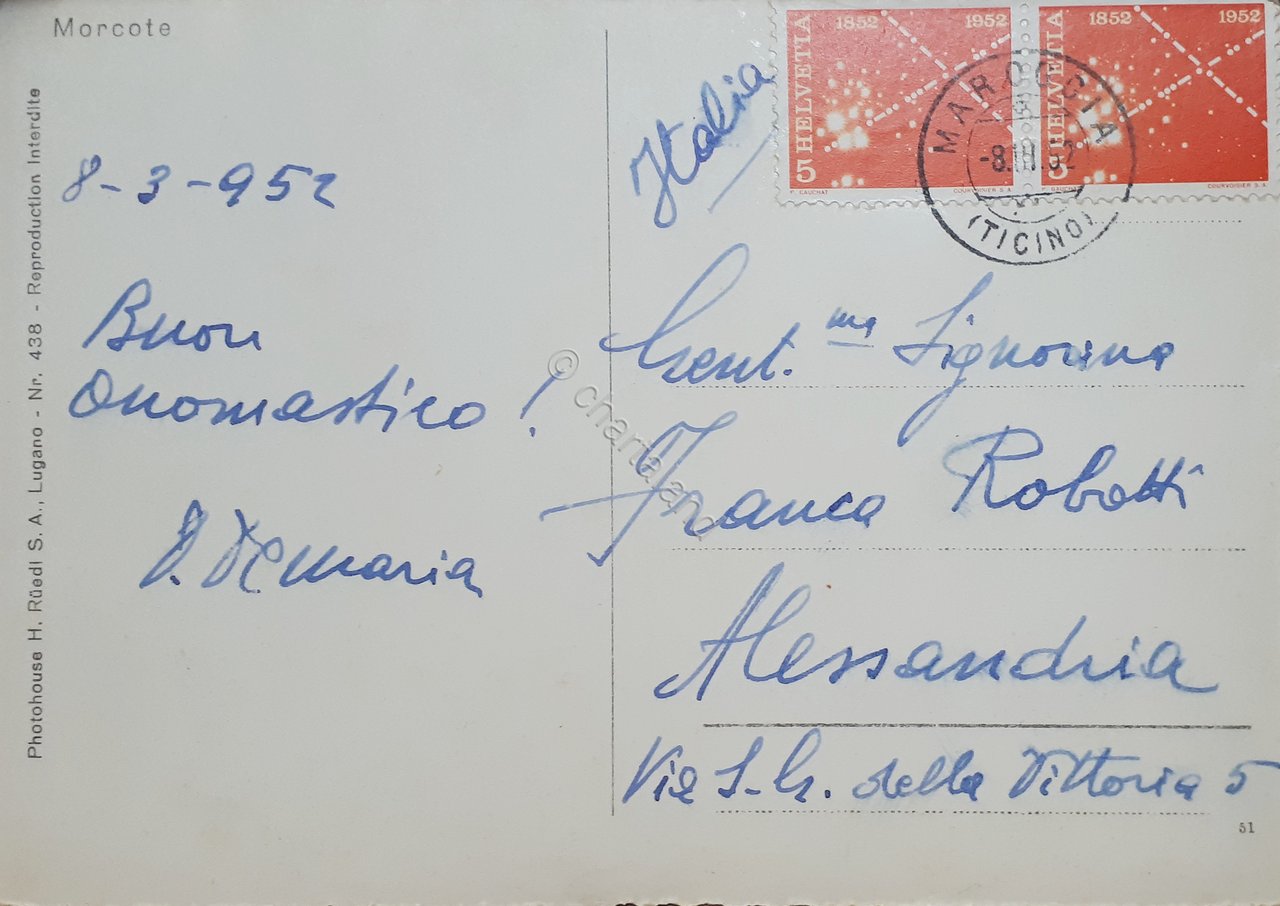 Morcote
Photohouse H. Rüedi S. A., Lugano - Nr. 438 - Reproduction Interdite
8-3-952
Buon
Onomastico!
Demaria
Italia
1852 1952
HELVETIA
5
P. GAUCHAT COURVOISIER S.A.
1852 1952
HELVETIA
5
P. GAUCHAT COURVOISIER S.A.
MAROGGIA
-8.III.52
(TICINO)
Gent.ma Signorina
Franca Robotti
Alessandria
Via S.G. della Vittoria 5
51
© charta